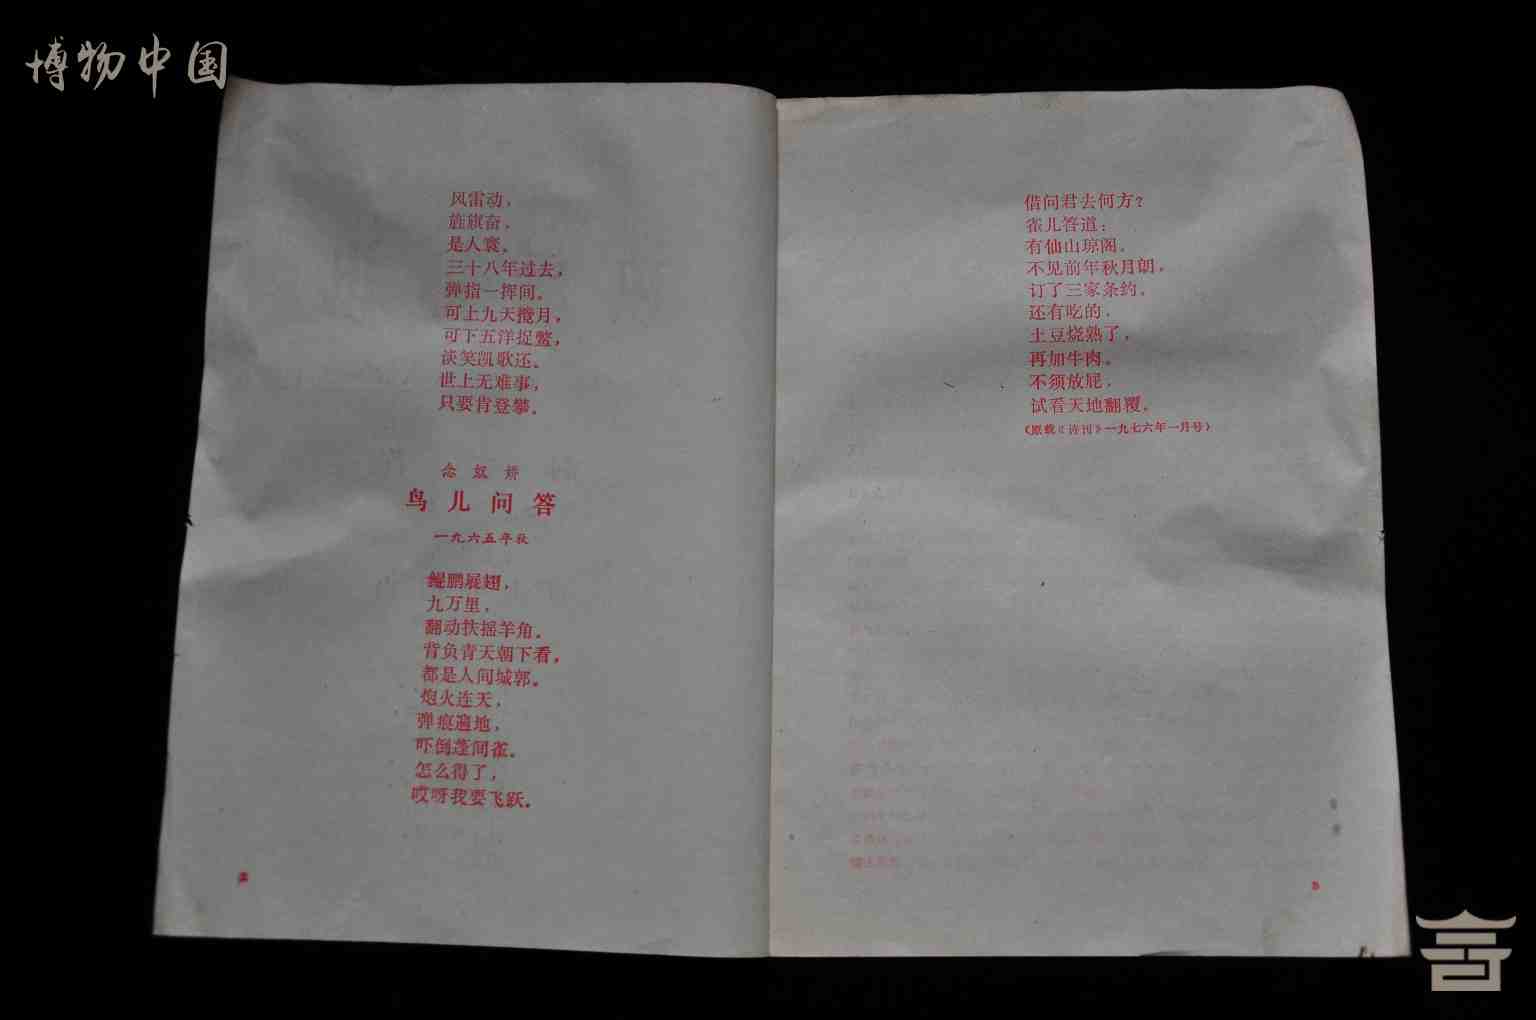 博物中国
风雷动，
旌旗奋，
是人寰。
三十八年过去，
弹指一挥间。
可上九天揽月，
可下五洋捉鳖，
谈笑凯歌还。
世上无难事，
只要肯登攀。
念奴娇
鸟儿问答
一九六五年秋
鲲鹏展翅，
九万里，
翻动扶摇羊角。
背负青天朝下看，
都是人间城郭。
炮火连天，
弹痕遍地，
吓倒蓬间雀。
怎么得了，
哎呀我要飞跃。
借问君去何方？
雀儿答道：
有仙山琼阁。
不见前年秋月朗，
订了三家条约。
还有吃的，
土豆烧熟了，
再加牛肉。
不须放屁，
试看天地翻覆。
（原载《诗刊》一九七六年一月号）